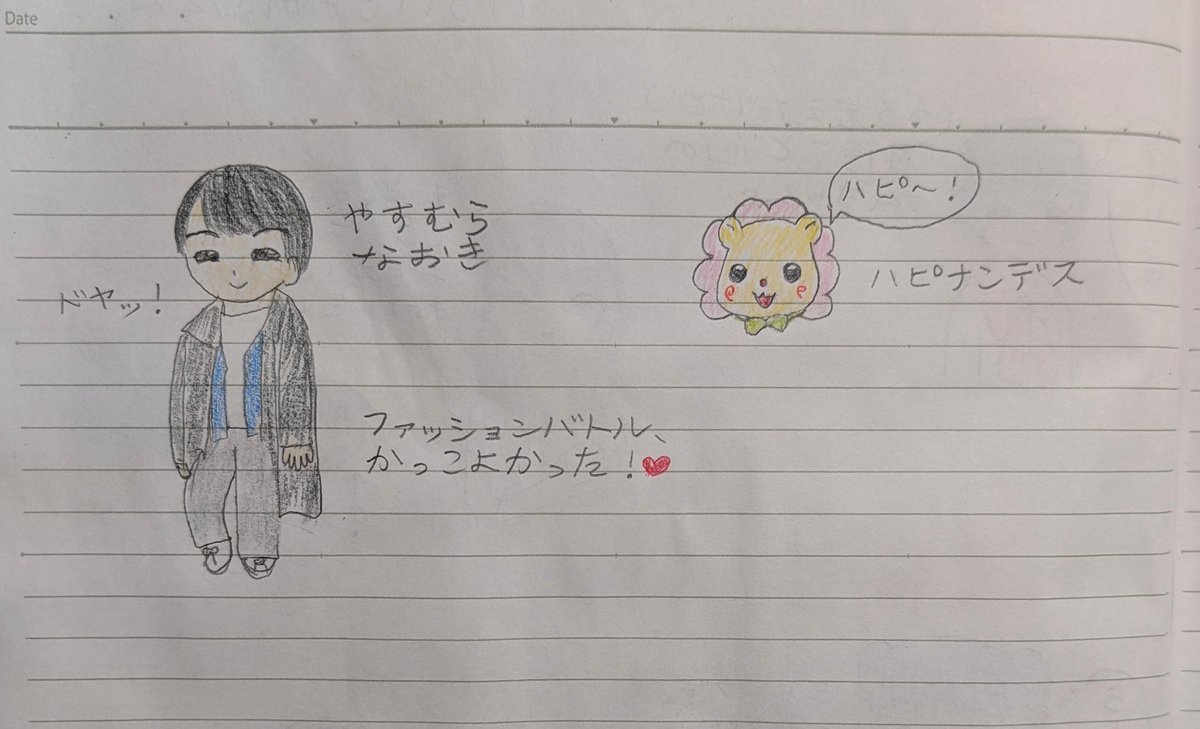 Date
やすむら
なおき
ドヤッ!
ファッションバトル、
かっこよかった!
ハピ~!
ハピナンデス